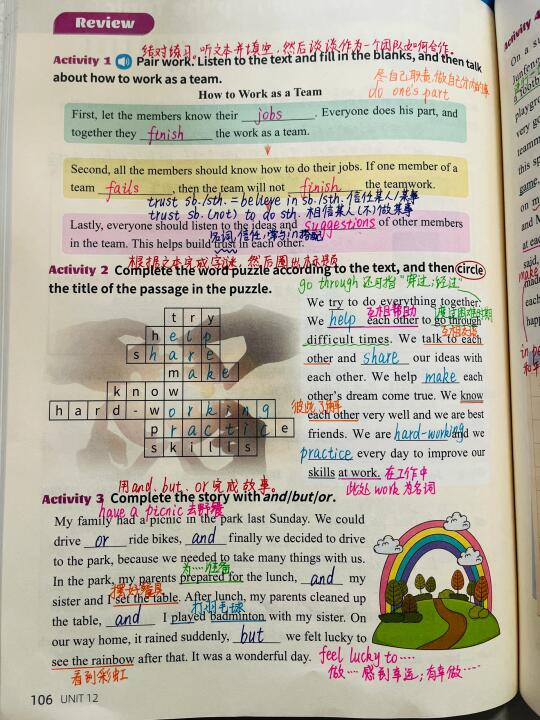 Review
结对练习。听文本并填空，然后谈谈作为一个团队如何合作。
Activity 1 Pair work. Listen to the text and fill in the blanks, and then talk
about how to work as a team.
尽自己职责，做自己分内的事
do one's part
How to Work as a Team
First, let the members know their jobs. Everyone does his part, and
together they finish the work as a team.
Second, all the members should know how to do their jobs. If one member of a
team fails, then the team will not finish the teamwork.
trust sb./sth. = believe in sb./sth. 信任某人/某事
trust sb. (not) to do sth. 相信某人(不)做某事
Lastly, everyone should listen to the ideas and suggestions of other members
in the team. This helps build trust in each other.
名词，信任，常与in搭配
根据文本完成字谜，然后圈出标题
Activity 2 Complete the word puzzle according to the text, and then circle
the title of the passage in the puzzle.
go through 还可指“穿过；经过”
try
help
share
make
know
hard-working
practice
skills
We try to do everything together.
互相帮助
度过困难时期
We help each other to go through
互相交谈
difficult times. We talk to each
other and share our ideas with
each other. We help make each
other's dream come true. We know
彼此了解
each other very well and we are best
friends. We are hard-working and we
practice every day to improve our
skills at work. 在工作中
此处work为名词
用and、but、or完成故事。
Activity 3 Complete the story with and/but/or.
have a picnic 去野餐
My family had a picnic in the park last Sunday. We could
drive or ride bikes, and finally we decided to drive
to the park, because we needed to take many things with us.
为…准备
In the park, my parents prepared for the lunch, and my
摆好餐具
sister and I set the table. After lunch, my parents cleaned up
打羽毛球
the table, and I played badminton with my sister. On
our way home, it rained suddenly, but we felt lucky to
see the rainbow after that. It was a wonderful day.
feel lucky to……
看到彩虹
做…感到幸运；有幸做……
106 UNIT 12